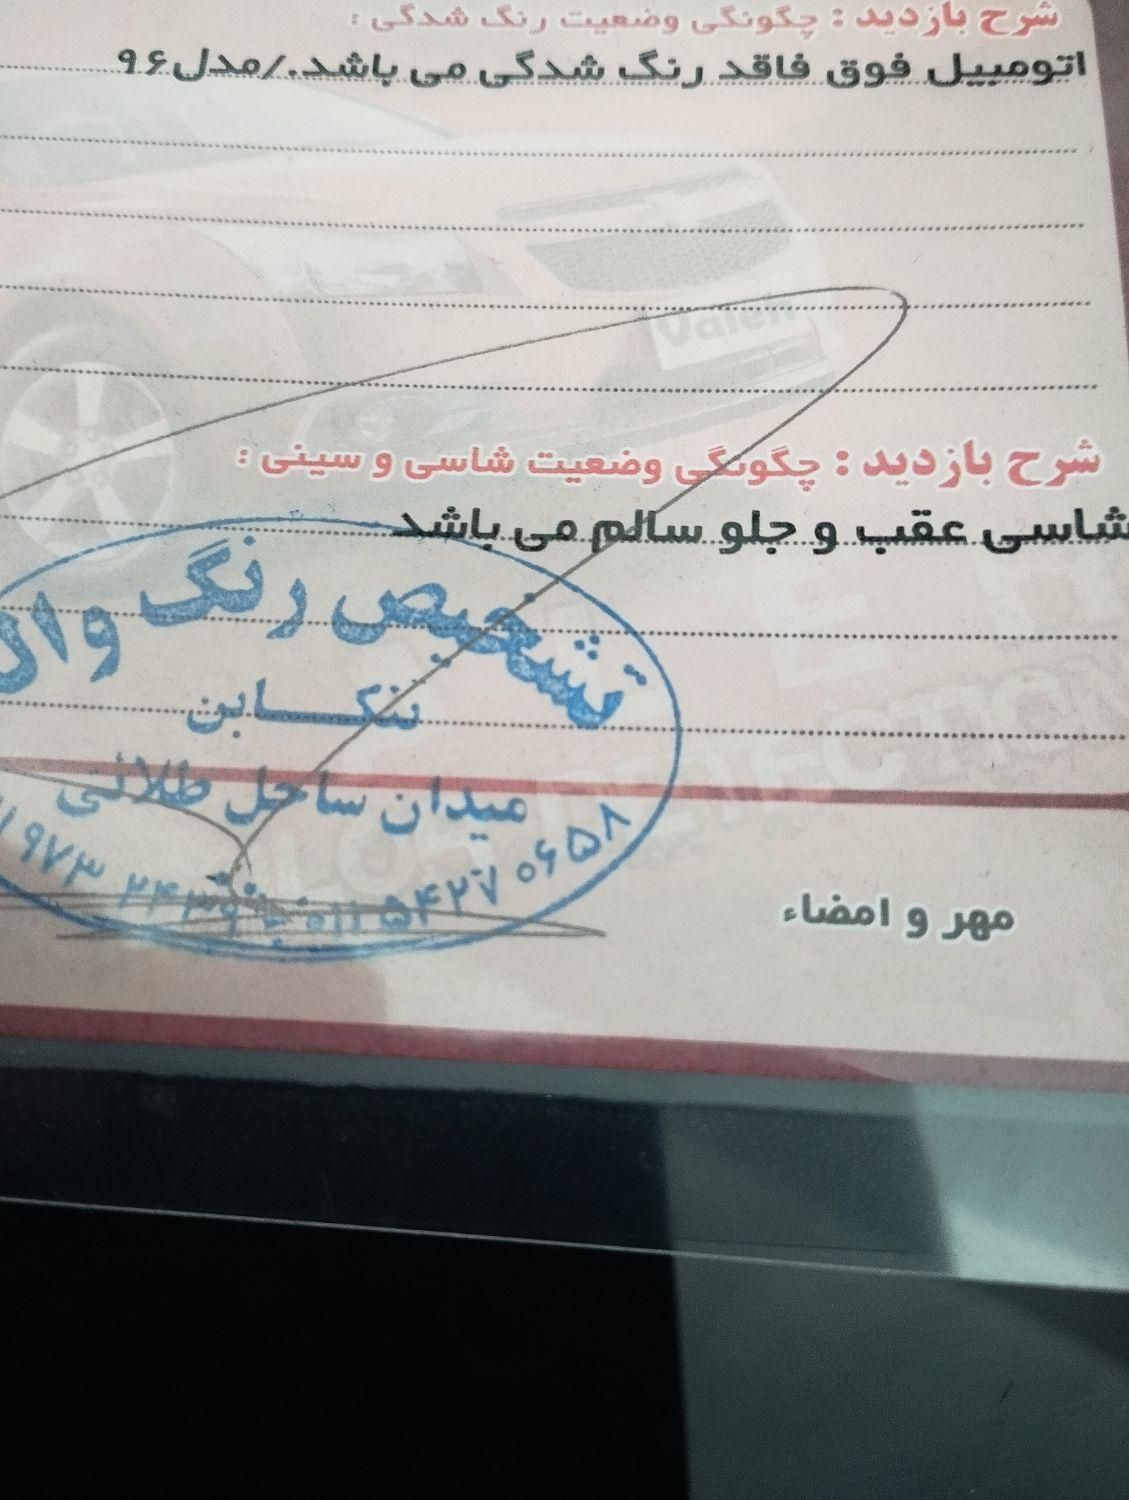 شرح بازدید : چگونگی وضعیت رنگ شدگی :
اتومبیل فوق فاقد رنگ شدگی می باشد./مدل۹۶
Valen
شرح بازدید : چگونگی وضعیت شاسی و سینی :
شاسی عقب و جلو سالم می باشد
تشخیص رنگ وال
تنکابن
میدان ساحل طلائی
۰۱۱ ۵۴۲۷ ۰۶۵۸
مهر و امضاء